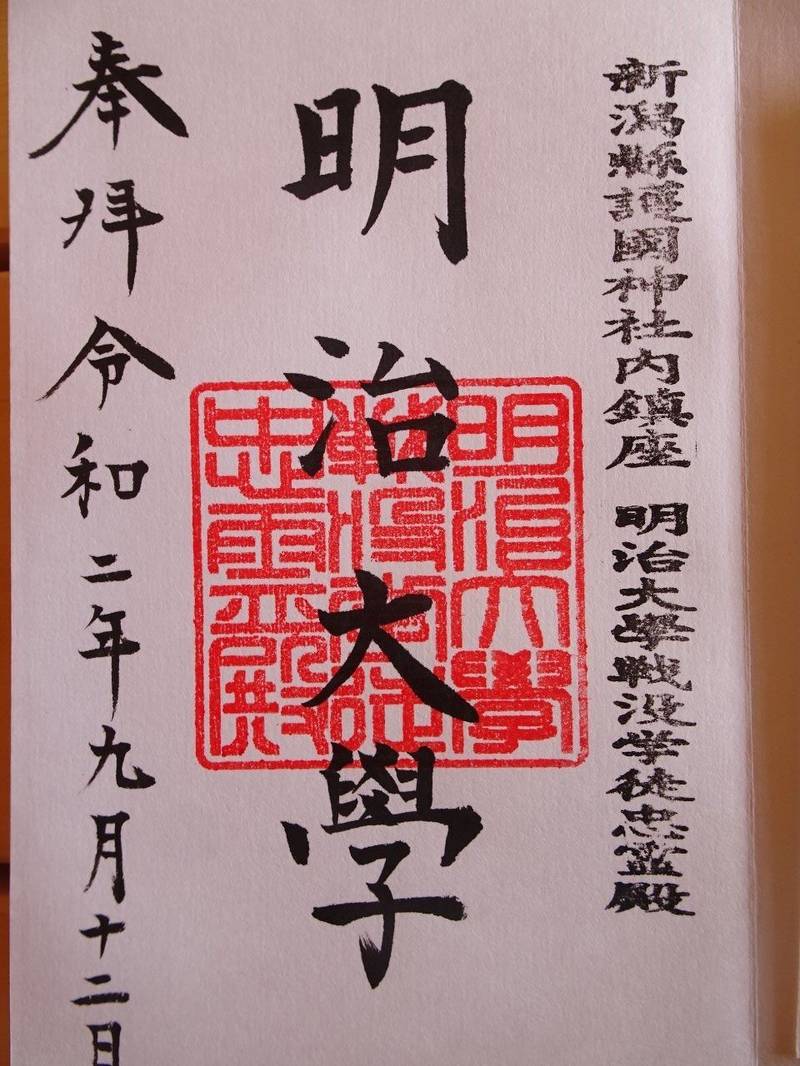 新潟縣護國神社内鎮座 明治大學戦没学徒忠霊殿
明治大學
明治大學
戰歿學徒
忠霊殿
奉拜 令和二年九月十二日